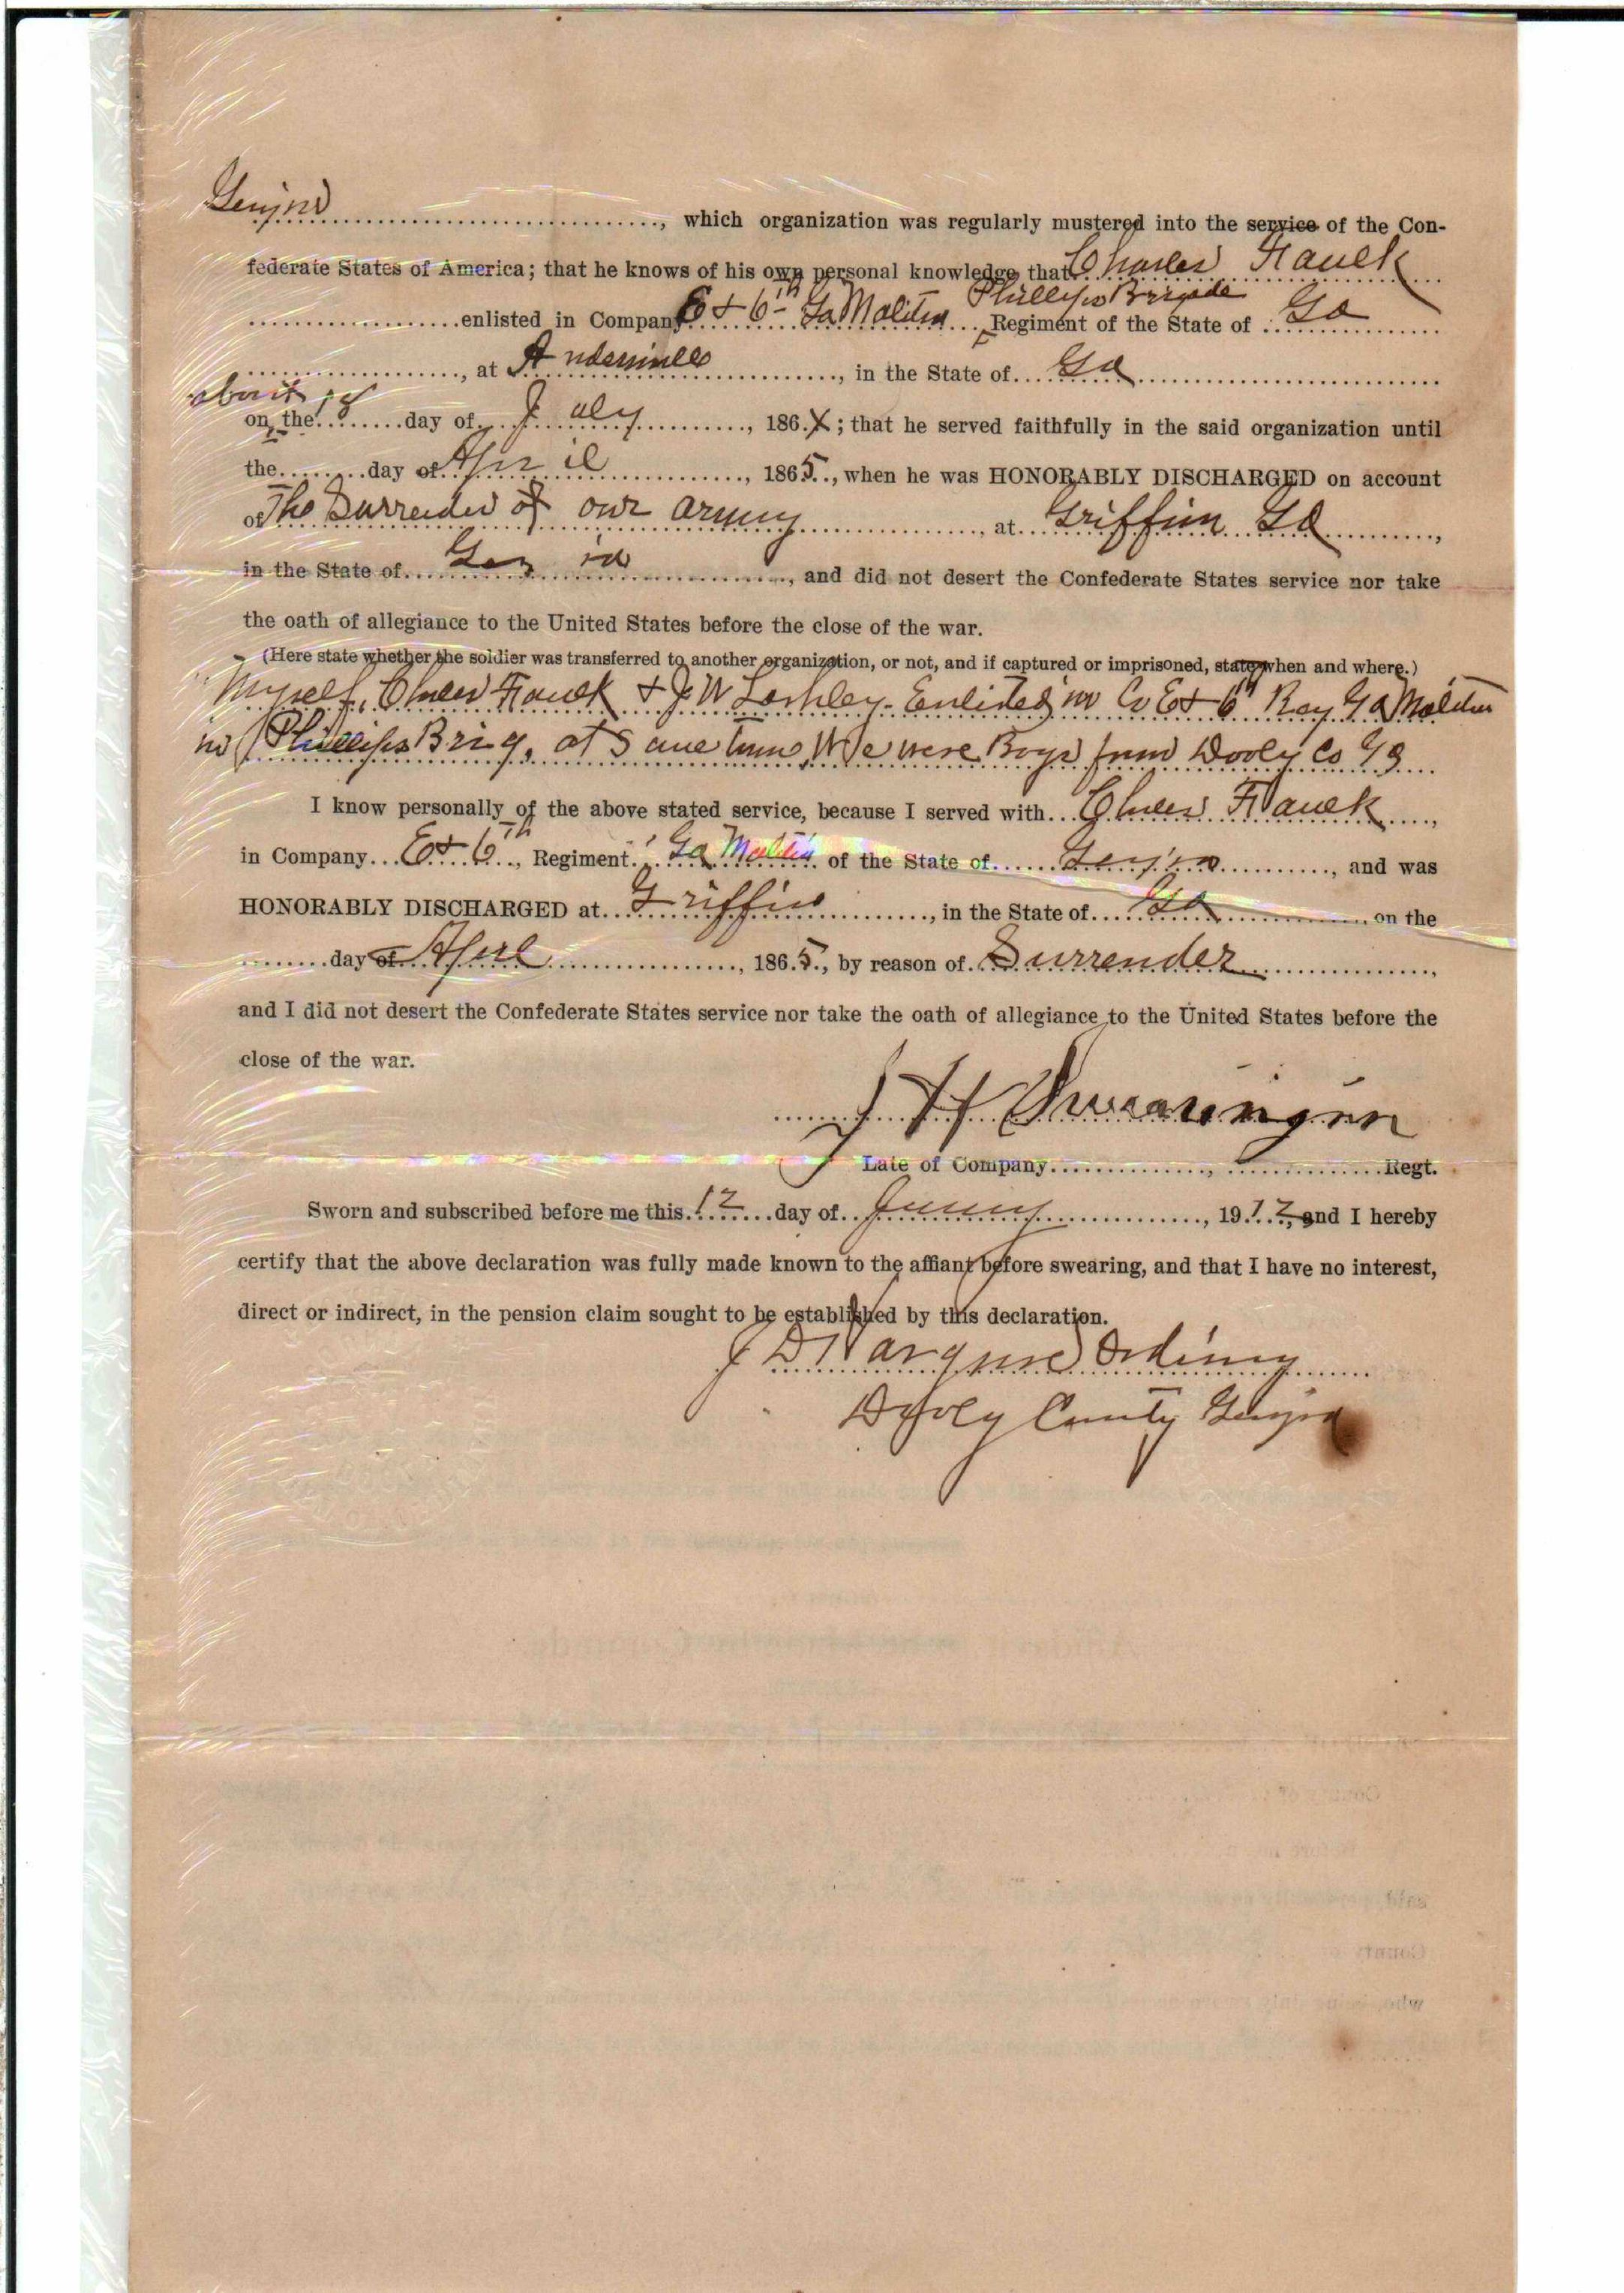 Georgia, which organization was regularly mustered into the service of the Con-
federate States of America; that he knows of his own personal knowledge that Charles Faulk
Phillips Brigade
enlisted in Company E & 6th Ga Malitia Regiment of the State of Ga
, at Andersonville, in the State of Ga
about 18
on the day of July, 1864; that he served faithfully in the said organization until
the day of April, 1865, when he was HONORABLY DISCHARGED on account
of The Surrender of our army, at Griffin Ga,
in the State of Georgia, and did not desert the Confederate States service nor take
the oath of allegiance to the United States before the close of the war.
(Here state whether the soldier was transferred to another organization, or not, and if captured or imprisoned, state when and where.)
Myself, Charles Faulk & J W Lashley Enlisted in Co E & 6th Reg Ga Malitia
in Phillips Brig. at same time, We were Boys from Dooly Co Ga
I know personally of the above stated service, because I served with Charles Faulk,
in Company E & 6th, Regiment Ga Malitia of the State of Georgia, and was
HONORABLY DISCHARGED at Griffin, in the State of Ga on the
day of April, 1865, by reason of Surrender,
and I did not desert the Confederate States service nor take the oath of allegiance to the United States before the
close of the war.
J H Swearingen
Late of Company, Regt.
Sworn and subscribed before me this 12 day of, 1912, and I hereby
certify that the above declaration was fully made known to the affiant before swearing, and that I have no interest,
direct or indirect, in the pension claim sought to be established by this declaration.
J D Hargrove Ordinary
Dooly County Georgia